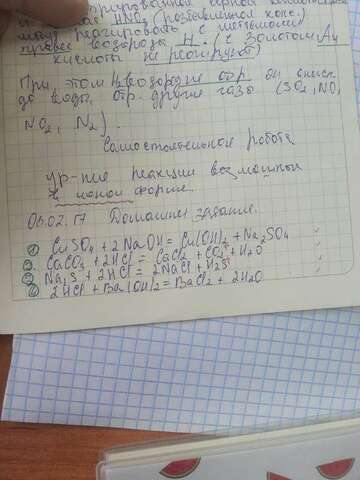 HNO₃ (разбавленная конц.)
могут реагировать с металлами
правее водорода H. (с золотом Au
кислоты не реагируют)
При этом водород не отр. он
до воды, отр. другие газы (SO₂, NO,
NO₂, N₂).
Самостоятельная работа
ур-ние реакции возможных
в ионой форме
06.02.17 Домашнее задание.
① CuSO₄ + 2NaOH = Cu(OH)₂ + Na₂SO₄
②. CaCO₃ + 2HCl = CaCl₂ + CO₂ + H₂O
Na₂S + 2HCl = 2NaCl + H₂S
2HCl + Ba(OH)₂ = BaCl₂ + 2H₂O